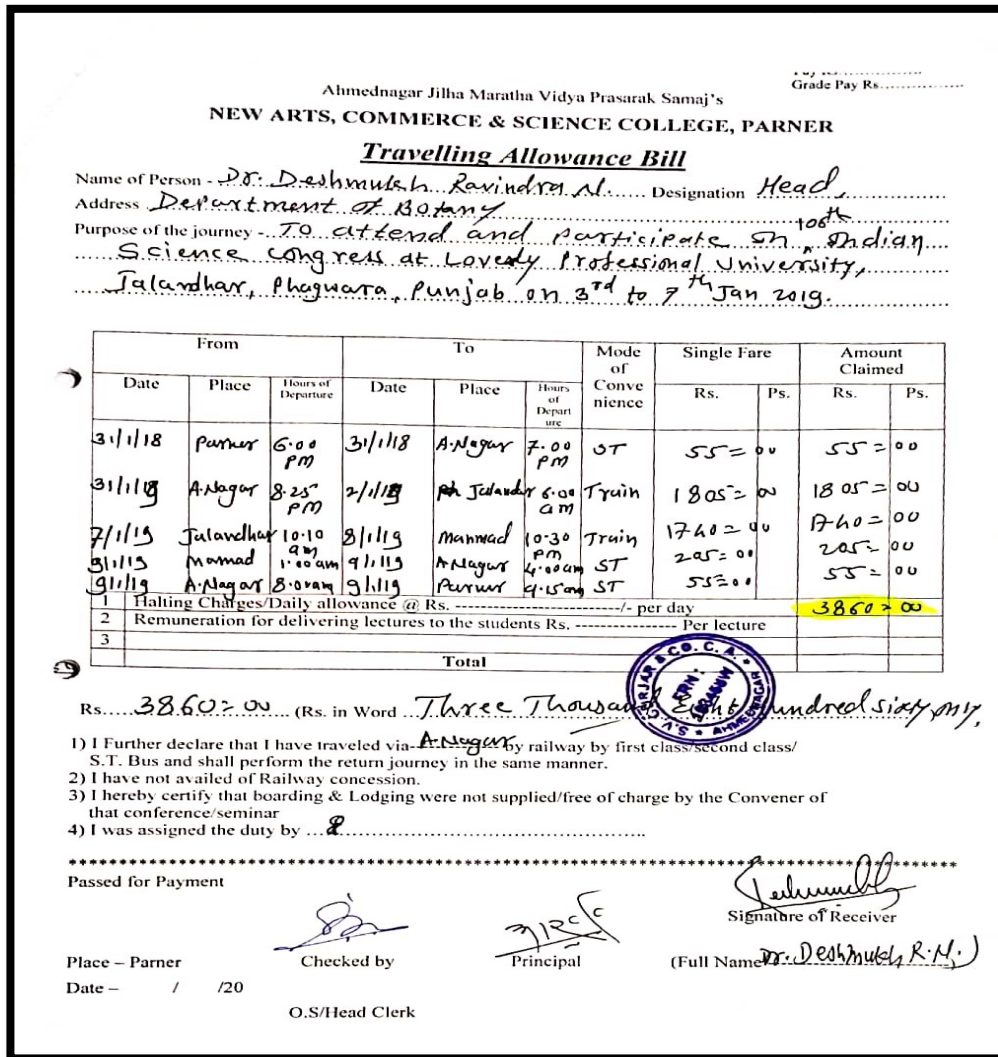 Grade Pay Rs.................
Ahmednagar Jilha Maratha Vidya Prasarak Samaj's
NEW ARTS, COMMERCE & SCIENCE COLLEGE, PARNER
Travelling Allowance Bill
Name of Person - Dr. Deshmukh Ravindra N. Designation Head,
Address Department of Botany
Purpose of the journey - To attend and participate in 106th Indian
Science congress at Lovely Professional University,
Jalandhar, Phagwara, Punjab on 3rd to 7th Jan 2019.
From To Mode of Conve nience Single Fare Amount Claimed
Date Place Hours of Departure Date Place Hours of Depart ure Rs. Ps. Rs. Ps.
31/1/18 Parner 6.00 PM 31/1/18 A.Nagar 7.00 PM ST 55=00 55=00
31/1/18 A.Nagar 8.25 PM 2/1/19 Jalandar 6.00 am Train 1805=00 1805=00
7/1/19 Jalandhar 10.10 am 8/1/19 Manmad 10.30 PM Train 1740=00 1740=00
9/1/19 Manmad 1.00am 9/1/19 A.Nagar 4.00am ST 205=00 205=00
9/1/19 A.Nagar 8.00am 9/1/19 Parner 9.15am ST 55=00 55=00
1 Halting Charges/Daily allowance @ Rs. --------------------------/- per day 3860=00
2 Remuneration for delivering lectures to the students Rs. -------------- Per lecture
3
Total
S.V. GURJAR & CO. C. A. * AHMEDNAGAR *
FRN:
Rs.....3860=00 (Rs. in Word ...Three Thousand Eight Hundred sixty only.
1) I Further declare that I have traveled via- A.Nagar by railway by first class/second class/
S.T. Bus and shall perform the return journey in the same manner.
2) I have not availed of Railway concession.
3) I hereby certify that boarding & Lodging were not supplied/free of charge by the Convener of
that conference/seminar
4) I was assigned the duty by ..............................................
Passed for Payment
Signature of Receiver
Place – Parner Checked by Principal (Full Name Dr. Deshmukh R.N.)
Date – / /20
O.S/Head Clerk